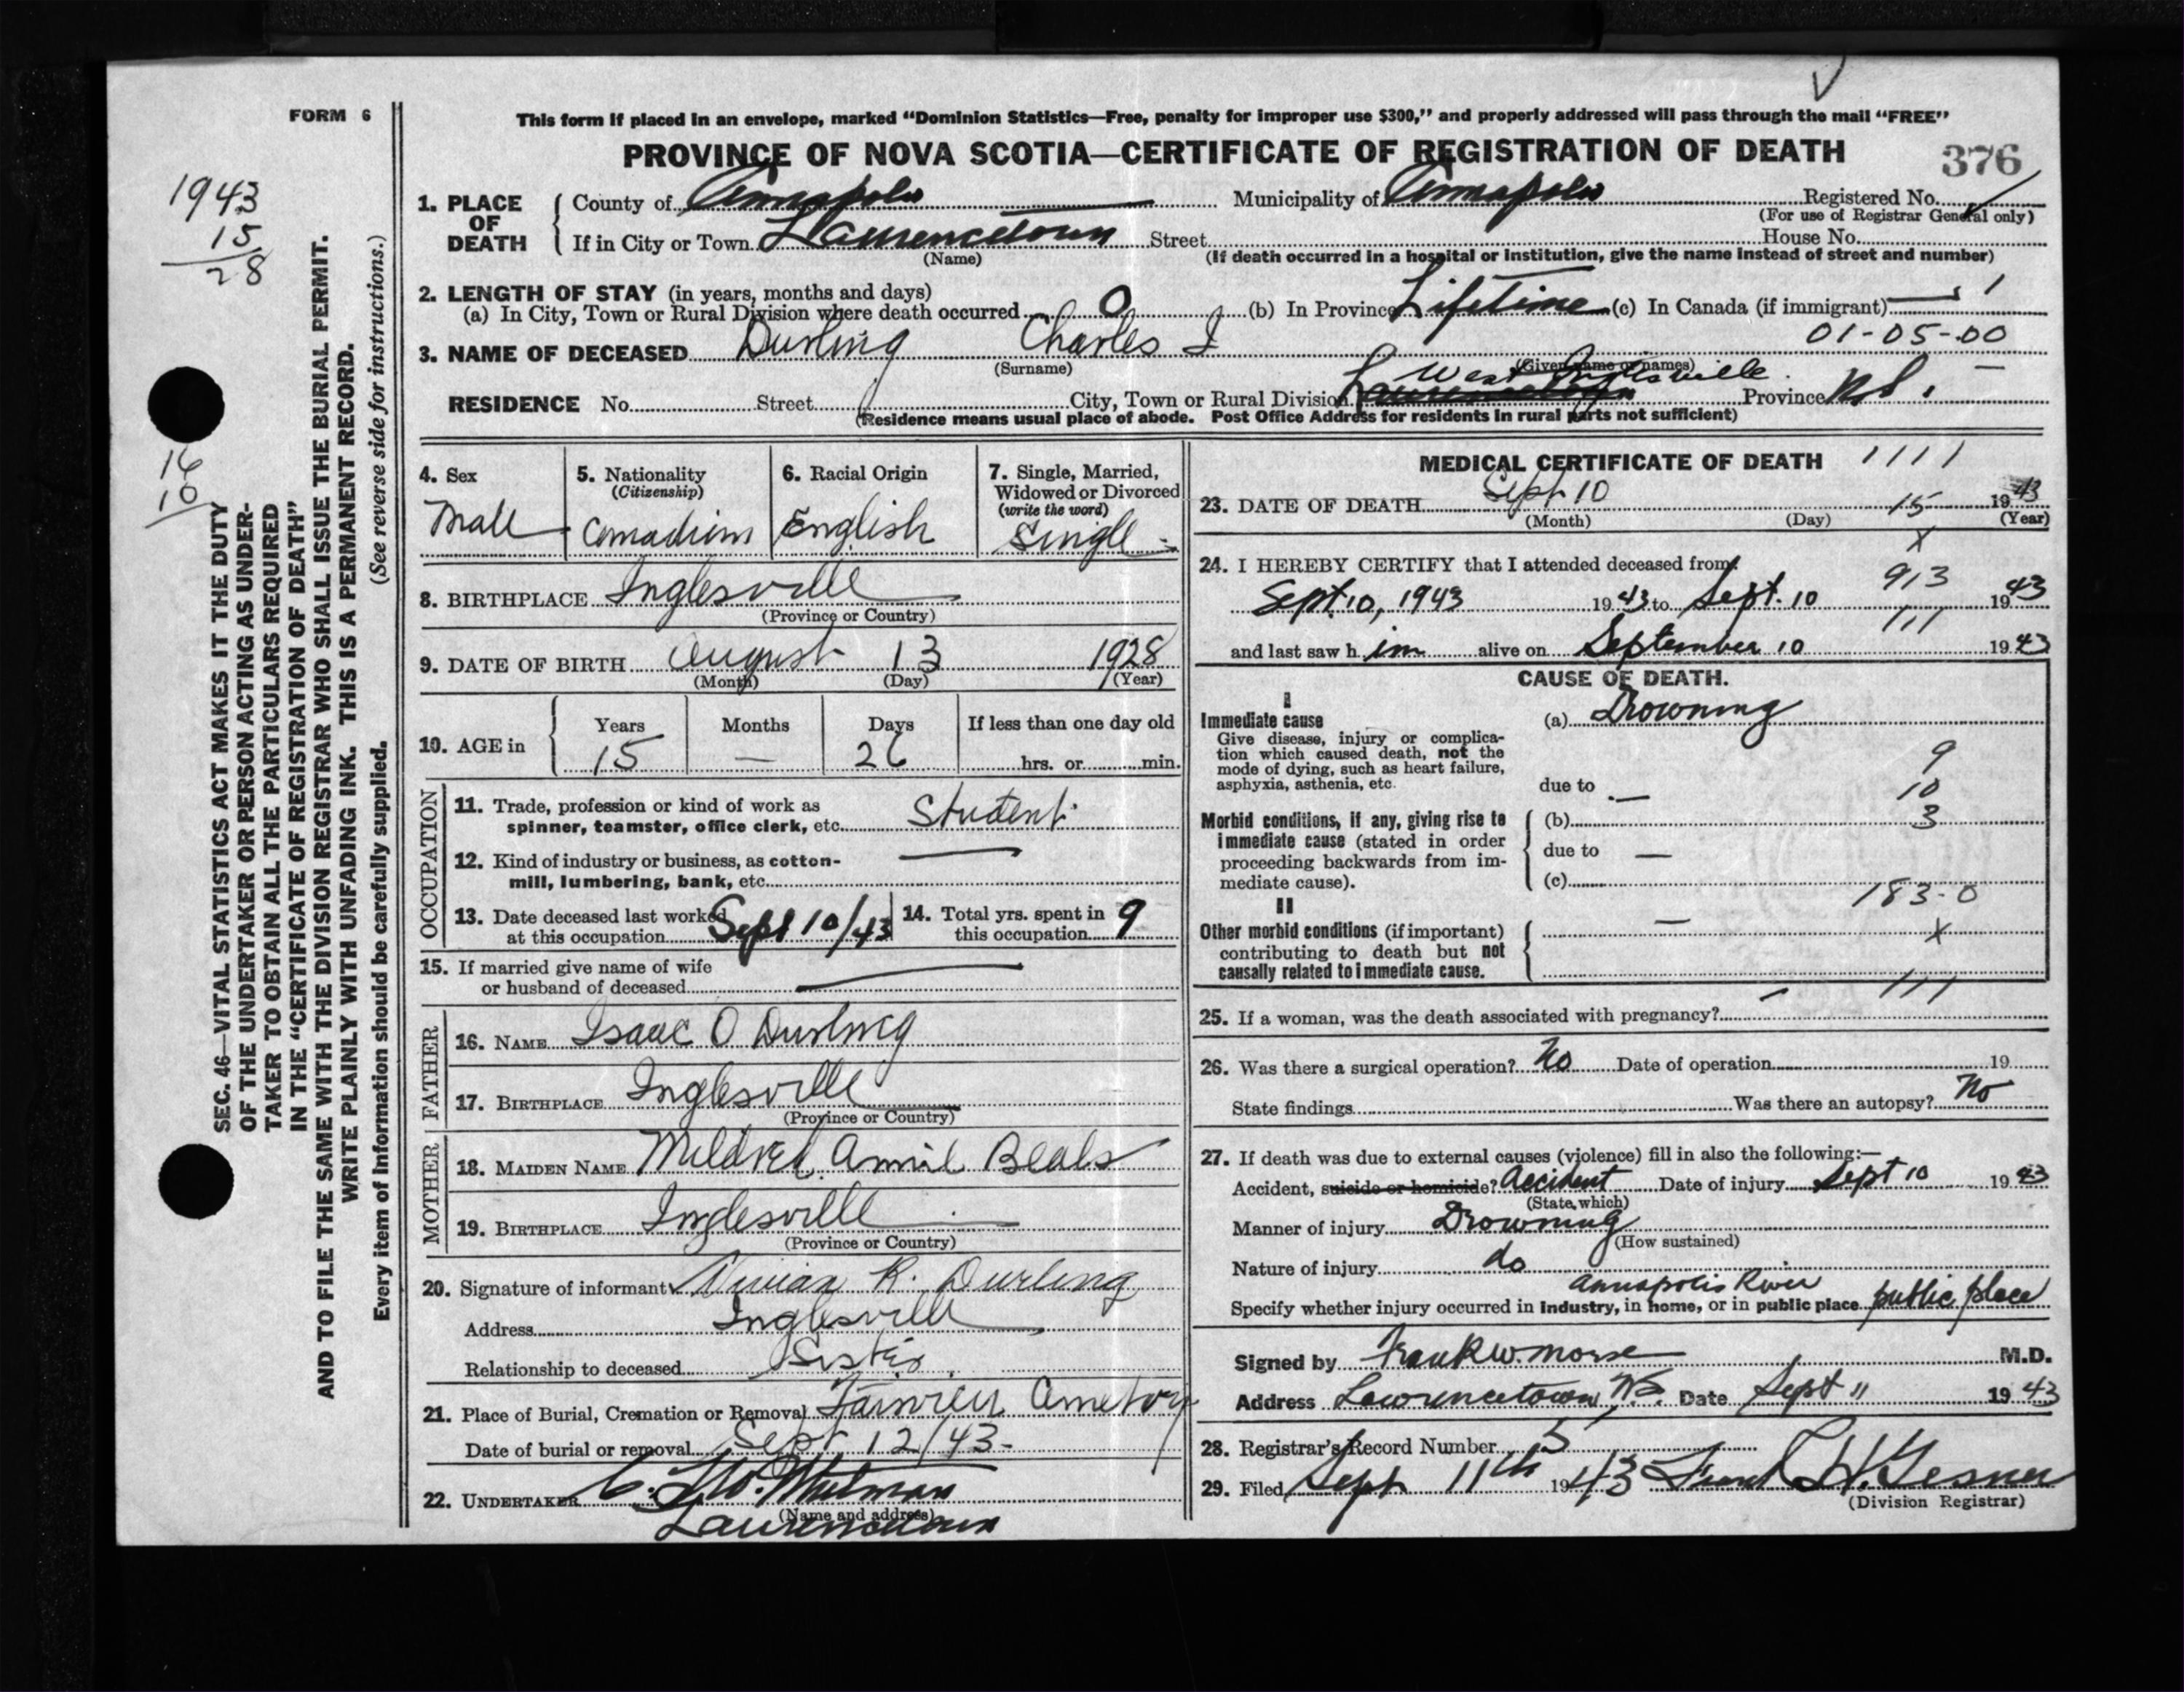 FORM 6
This form if placed in an envelope, marked “Dominion Statistics—Free, penalty for improper use $300,” and properly addressed will pass through the mail “FREE”
PROVINCE OF NOVA SCOTIA—CERTIFICATE OF REGISTRATION OF DEATH 376
1943
15
28
16
10
SEC. 46—VITAL STATISTICS ACT MAKES IT THE DUTY
OF THE UNDERTAKER OR PERSON ACTING AS UNDER-
TAKER TO OBTAIN ALL THE PARTICULARS REQUIRED
IN THE “CERTIFICATE OF REGISTRATION OF DEATH”
AND TO FILE THE SAME WITH THE DIVISION REGISTRAR WHO SHALL ISSUE THE BURIAL PERMIT.
WRITE PLAINLY WITH UNFADING INK. THIS IS A PERMANENT RECORD.
Every item of information should be carefully supplied. (See reverse side for instructions.)
1. PLACE OF DEATH
County of Annapolis Municipality of Annapolis Registered No.
(For use of Registrar General only)
If in City or Town Lawrencetown Street House No.
(Name) (If death occurred in a hospital or institution, give the name instead of street and number)
2. LENGTH OF STAY (in years, months and days)
(a) In City, Town or Rural Division where death occurred 0 (b) In Province Lifetime (c) In Canada (if immigrant)
01-05-00
3. NAME OF DECEASED Durling Charles I
(Surname) (Given name or names)
West Inglesville
RESIDENCE No. Street City, Town or Rural Division Lawrencetown Province N.S.
(Residence means usual place of abode. Post Office Address for residents in rural parts not sufficient)
4. Sex
Male
5. Nationality
(Citizenship)
Canadian
6. Racial Origin
English
7. Single, Married,
Widowed or Divorced
(write the word)
Single
8. BIRTHPLACE Inglesville
(Province or Country)
9. DATE OF BIRTH August 13 1928
(Month) (Day) (Year)
10. AGE in Years Months Days If less than one day old
15 — 26 hrs. or min.
OCCUPATION
11. Trade, profession or kind of work as
spinner, teamster, office clerk, etc. Student
12. Kind of industry or business, as cotton-
mill, lumbering, bank, etc.
13. Date deceased last worked
at this occupation Sept 10/43
14. Total yrs. spent in
this occupation 9
15. If married give name of wife
or husband of deceased
FATHER
16. NAME Isaac O Durling
17. BIRTHPLACE Inglesville
(Province or Country)
MOTHER
18. MAIDEN NAME Mildred Beals
19. BIRTHPLACE Inglesville
(Province or Country)
20. Signature of informant Vivian R. Durling
Address Inglesville
Relationship to deceased Sister
21. Place of Burial, Cremation or Removal
Date of burial or removal Sept 12/43
22. UNDERTAKER Whitman
(Name and address)
Lawrencetown
MEDICAL CERTIFICATE OF DEATH 1111
23. DATE OF DEATH Sept 10 15 1943
(Month) (Day) (Year)
x
24. I HEREBY CERTIFY that I attended deceased from
913
Sept. 10, 1943 1943 to Sept. 10 1943
111
and last saw him alive on September 10 1943
CAUSE OF DEATH.
I
Immediate cause
Give disease, injury or complica-
tion which caused death, not the
mode of dying, such as heart failure,
asphyxia, asthenia, etc.
(a) Drowning
9
due to — 10
Morbid conditions, if any, giving rise to
immediate cause (stated in order
proceeding backwards from im-
mediate cause).
(b) 3
due to —
(c) 183-0
II
Other morbid conditions (if important)
contributing to death but not
causally related to immediate cause.
— x
111
25. If a woman, was the death associated with pregnancy? —
26. Was there a surgical operation? No Date of operation 19
State findings Was there an autopsy? No
27. If death was due to external causes (violence) fill in also the following:—
Accident, suicide or homicide? Accident Date of injury Sept 10 1943
(State which)
Manner of injury Drowning
(How sustained)
Nature of injury do
Annapolis River
Specify whether injury occurred in industry, in home, or in public place public place
Signed by Frank W. Morse M.D.
Address Lawrencetown N.S. Date Sept 11 1943
28. Registrar's Record Number 5
29. Filed Sept 11th 1943 H. Gesner
(Division Registrar)